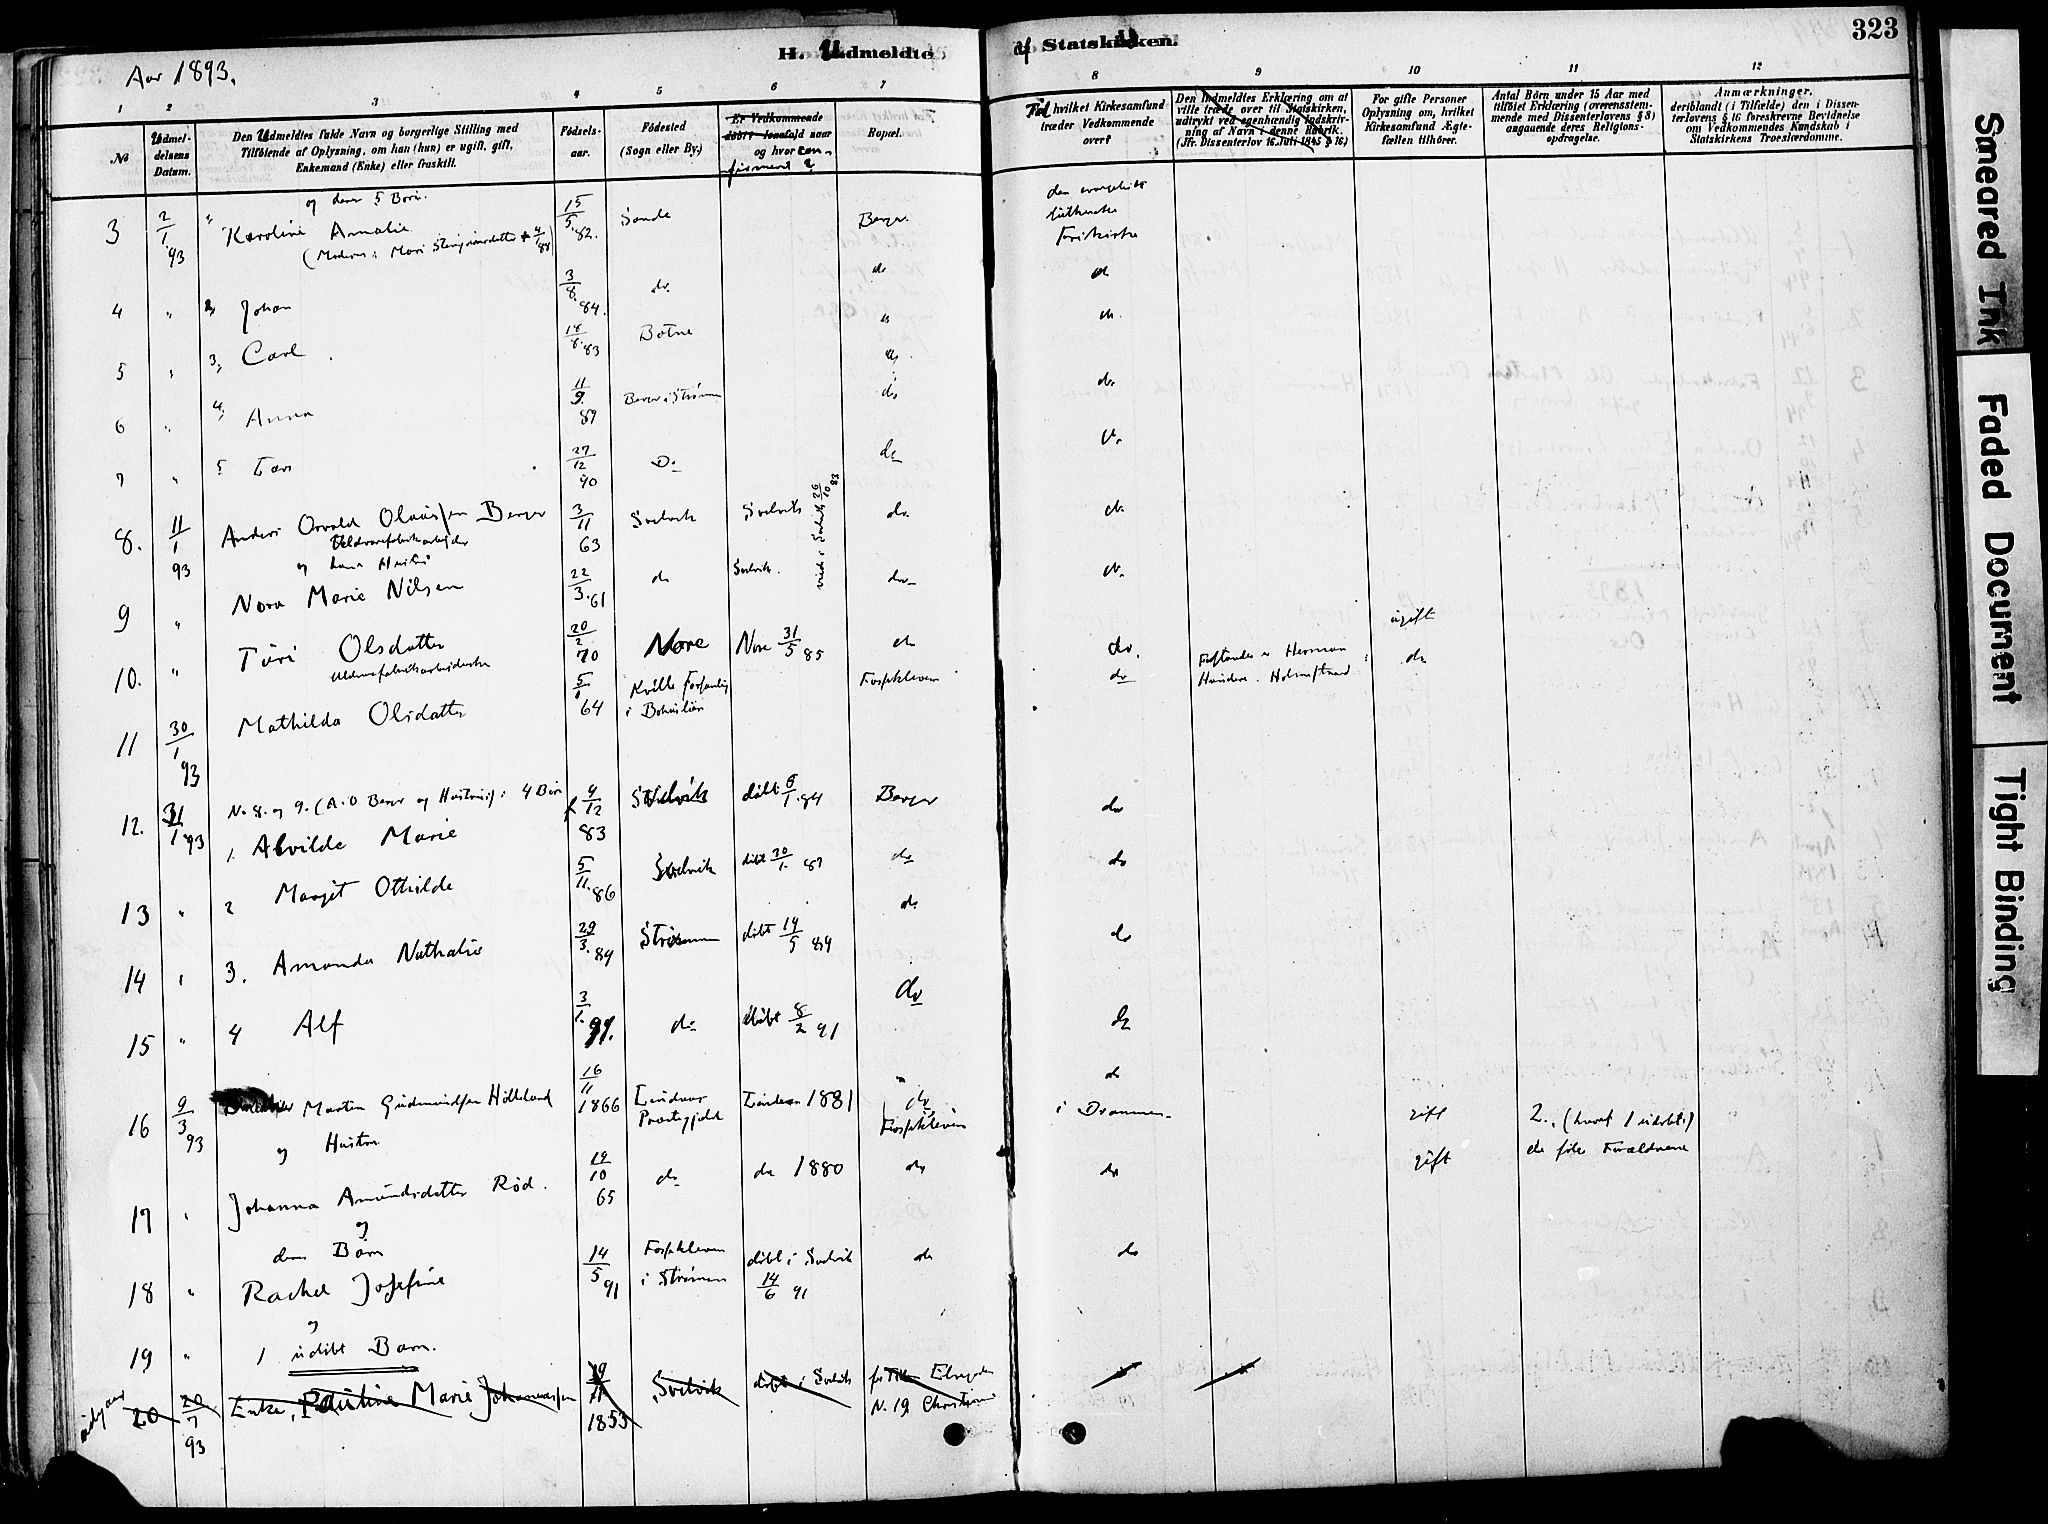 323
H. Udmeldte
af Statskirken.
Aar 1893.
1 2 3 4 5 6 7
8 9 10 11 12
No
Udmel-
delsens
Datum.
Den Udmeldtes fulde Navn og borgerlige Stilling med
Tilføiende af Oplysning, om han (hun) er ugift, gift,
Enkemand (Enke) eller fraskilt.
Fødsels-
aar.
Fødested
(Sogn eller By.)
Er Vedkommende
døbt i Tilfælde naar
og hvor con-
firmeret?
Bopæl.
Til hvilket Kirkesamfund
træder Vedkommende
over?
Den Indmeldtes Erklæring om at
ville træde over til Statskirken,
udtrykt ved egenhændig Indskriv-
ning af Navn i denne Rubrik.
(Jfr. Dissenterlov 16 Juli 1845 § 16)
For gifte Personer
Oplysning om, hvilket
Kirkesamfund Ægte-
fællen tilhører.
Antal Børn under 15 Aar med
tilføiet Erklæring (overensstem-
mende med Dissenterlovens § 8)
angaaende deres Religions-
opdragelse.
Anmærkninger,
deriblandt (i Tilfælde) den i Dissen-
terlovens § 16 foreskrevne Bevidnelse
om Vedkommendes Kundskab i
Statskirkens Troeslærdomme.
og deres 5 Børn.
3 2/1 93 Karoline Amalie 15/5 82. Sande Berger. den evangelisk
lutherske
Frikirke
(Moderen: Mari Steingrimsdatter
4 " 2, Johan 3/8 84. do. do do
5 " 3, Carl 18/8 83 Botne do do.
6 " 4, Anna 11/9 89 Berger i Strømm do do.
7 " 5 Lars 27/12 90 Do do do.
8. 11/1 93 Anders Osvald Olaussen Berger 3/11 63 Svelvik Svelvik do. do.
Uldvarefabrikarbeider
og hans Hustru
viet i Svelvik 26/10 83
9 " Nora Marie Nilsen 22/3 61 do Svelvik. do do.
10. " Turi Olsdatter 20/2 70 Nore Nore 31/5 85 do do. ugift
Uldvarefabrikarbeiderske
11 30/1 93 Mathilda Olsdatter 5/1 64 Kville Forsamling
i Bohuslän Fossekleven do Forstander er Herman
Hundere. Holmestrand do
No 8. og 9. (A. O Berger og Hustrus): 4 Børn
12. 31/1 93 1. Alvilde Marie f. 4/12 83 Svelvik døbt 6/1 84 Berger do
13 " 2 Margit Othilde 5/11 86 Svelvik døbt 30/1 87 do do
14 " 3. Amanda Nathalie 29/3 89 Strømm døbt 19/5 89 do do
15 " 4 Alf 3/1 91. do døbt 8/2 91 do do
16 9/3 93 Martin Gudmundsen Hølleland 16/11 1866 Lindaas
Præstegjeld Lindaas 1881 do
Fossekleven do
i Drammen. gift 2., (hvoraf 1 udøbt)
og Hustru
17 " Johanna Amundsdatter Rød. 19/10 65 do do 1880 do do gift de følge Forældrene
og
deres Børn
18 " Rachel Josefine 14/5 91 Fossekleven
i Strømm døbt i Svelvik
14/6 91 do do
og
19 " 1 udøbt Barn.
udgaar 20 20/7 93 Enke, Pauline Marie Johannessen 19/11 1853 Svelvik døbt i Svelvik
N. 19 Christiania
Smeared Ink
Faded Document
Tight Binding